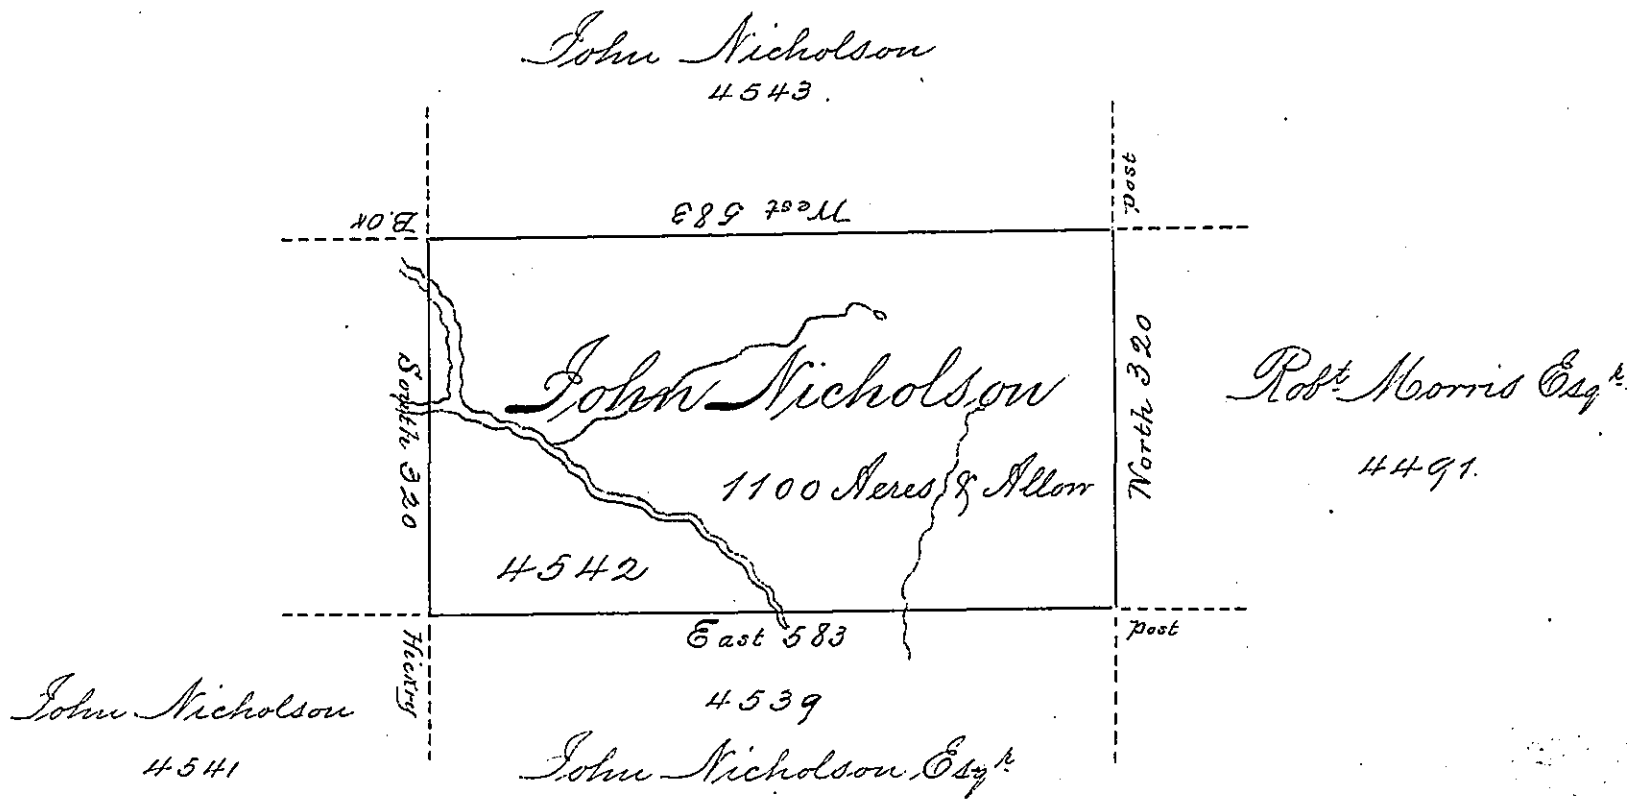 John Nicholson
4543.
post
B.Ok
West 583
South 320
John Nicholson
North 320
Robt Morris Esqr.
1100 Acres & Allow
4491.
4542
Hickry
East 583
post
John Nicholson
4539
4541
John Nicholson Esqr